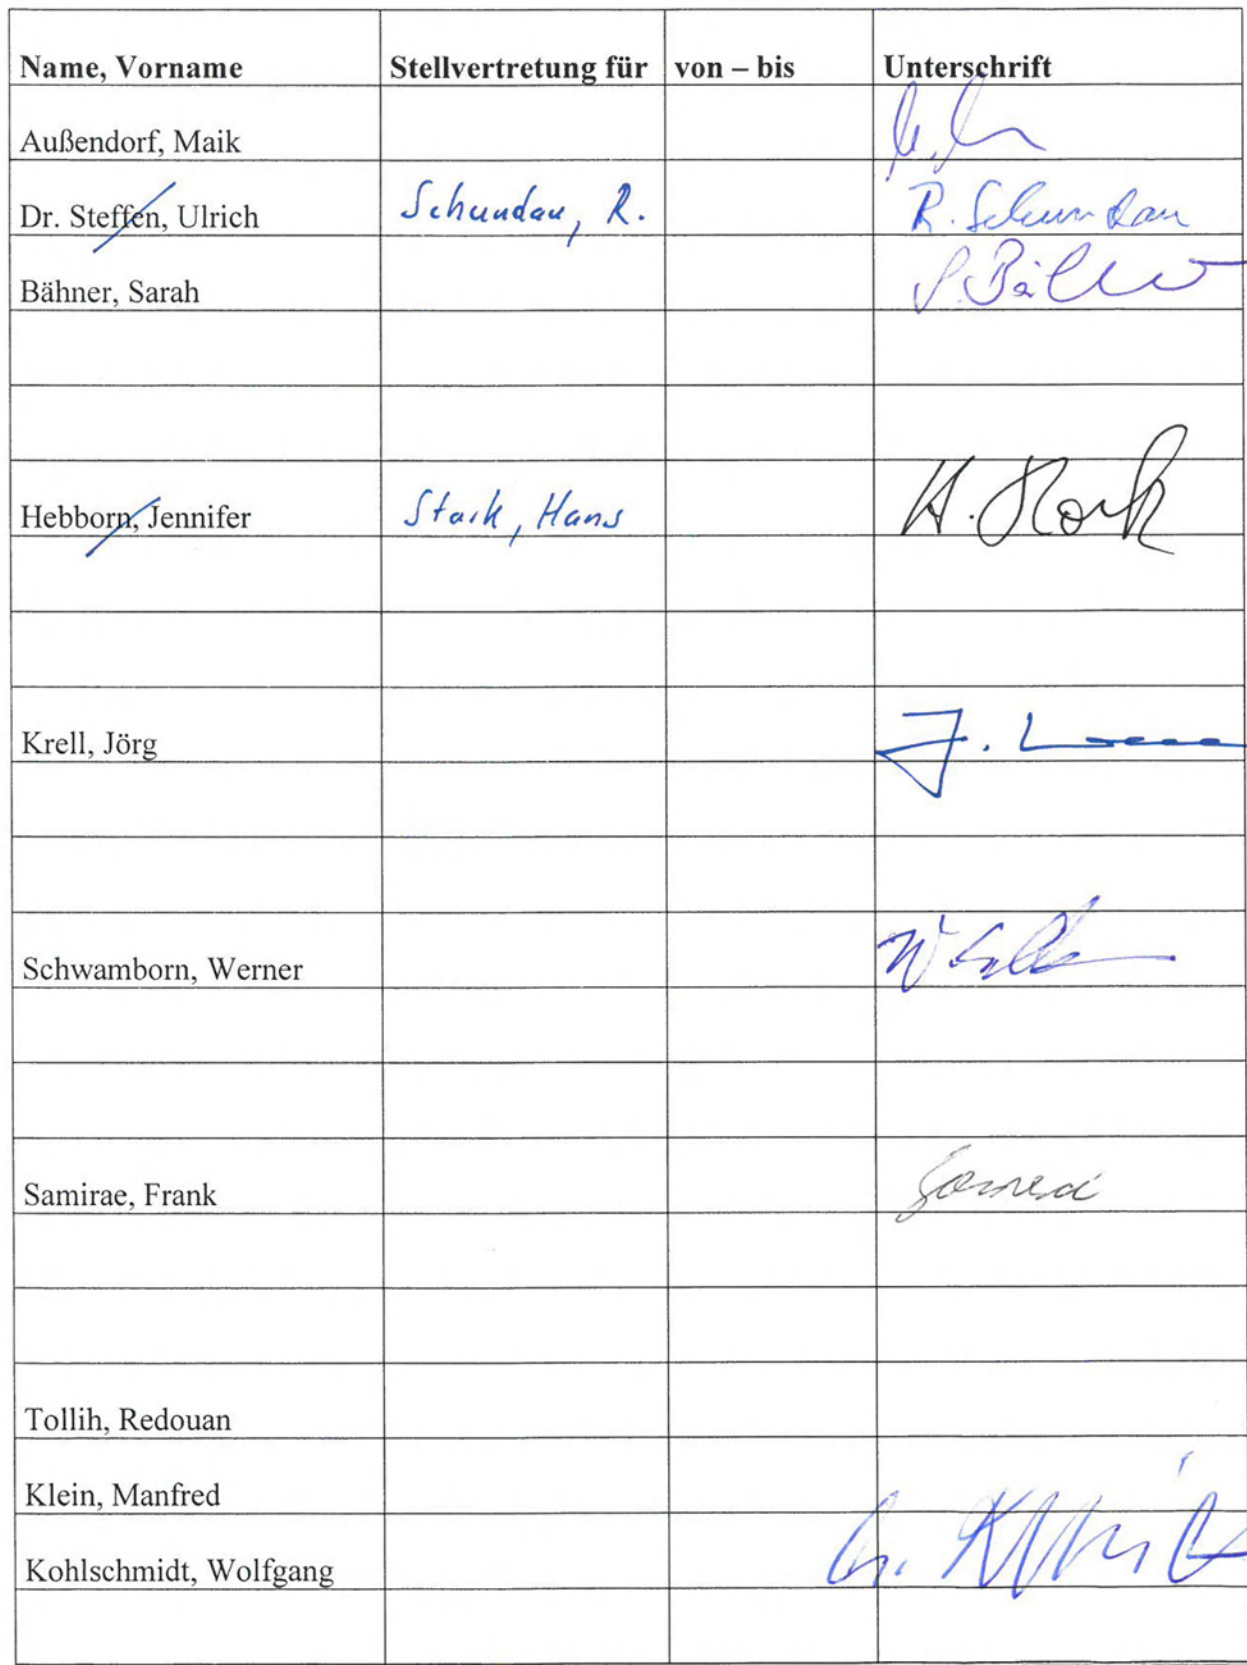 Name, Vorname Stellvertretung für von – bis Unterschrift
Außendorf, Maik
Dr. Steffen, Ulrich Schundau, R. R. Schundau
Bähner, Sarah S. Bähner
Hebborn, Jennifer Stark, Hans H. Stark
Krell, Jörg J.
Schwamborn, Werner W
Samirae, Frank
Tollih, Redouan
Klein, Manfred
Kohlschmidt, Wolfgang